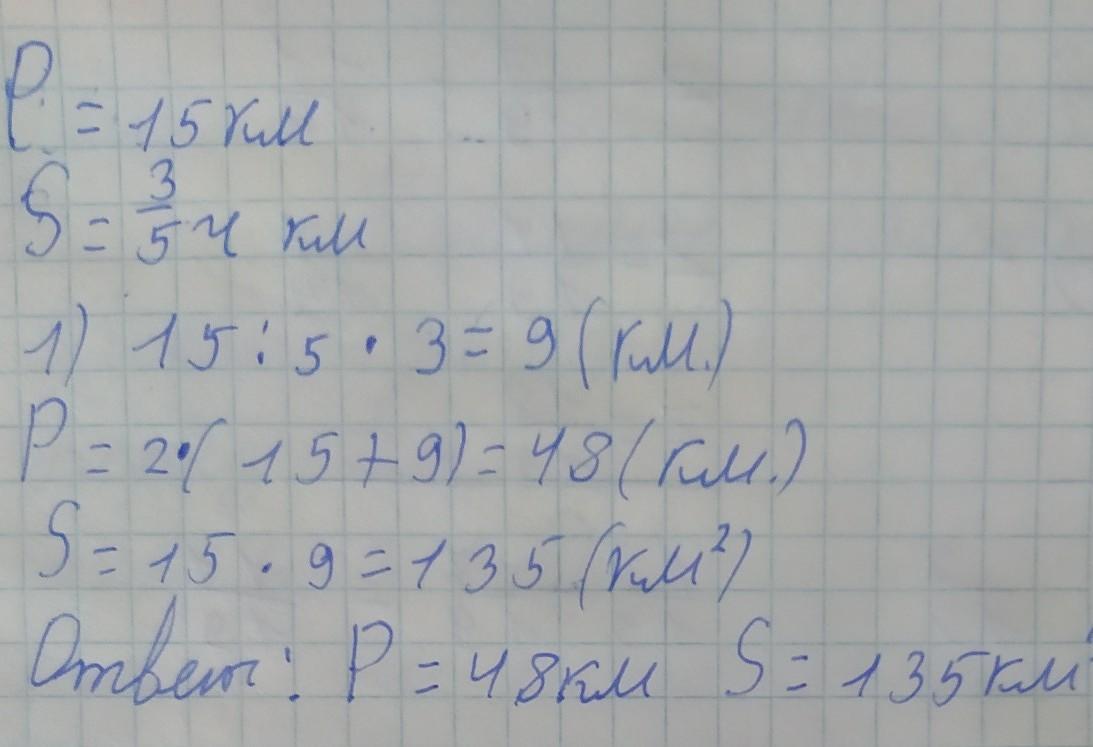 P = 15 км
S = 3/5 ч км
1) 15 : 5 · 3 = 9 (км.)
P = 2·(15 + 9) = 48 (км.)
S = 15 · 9 = 135 (км²)
Ответ: P = 48 км S = 135 км